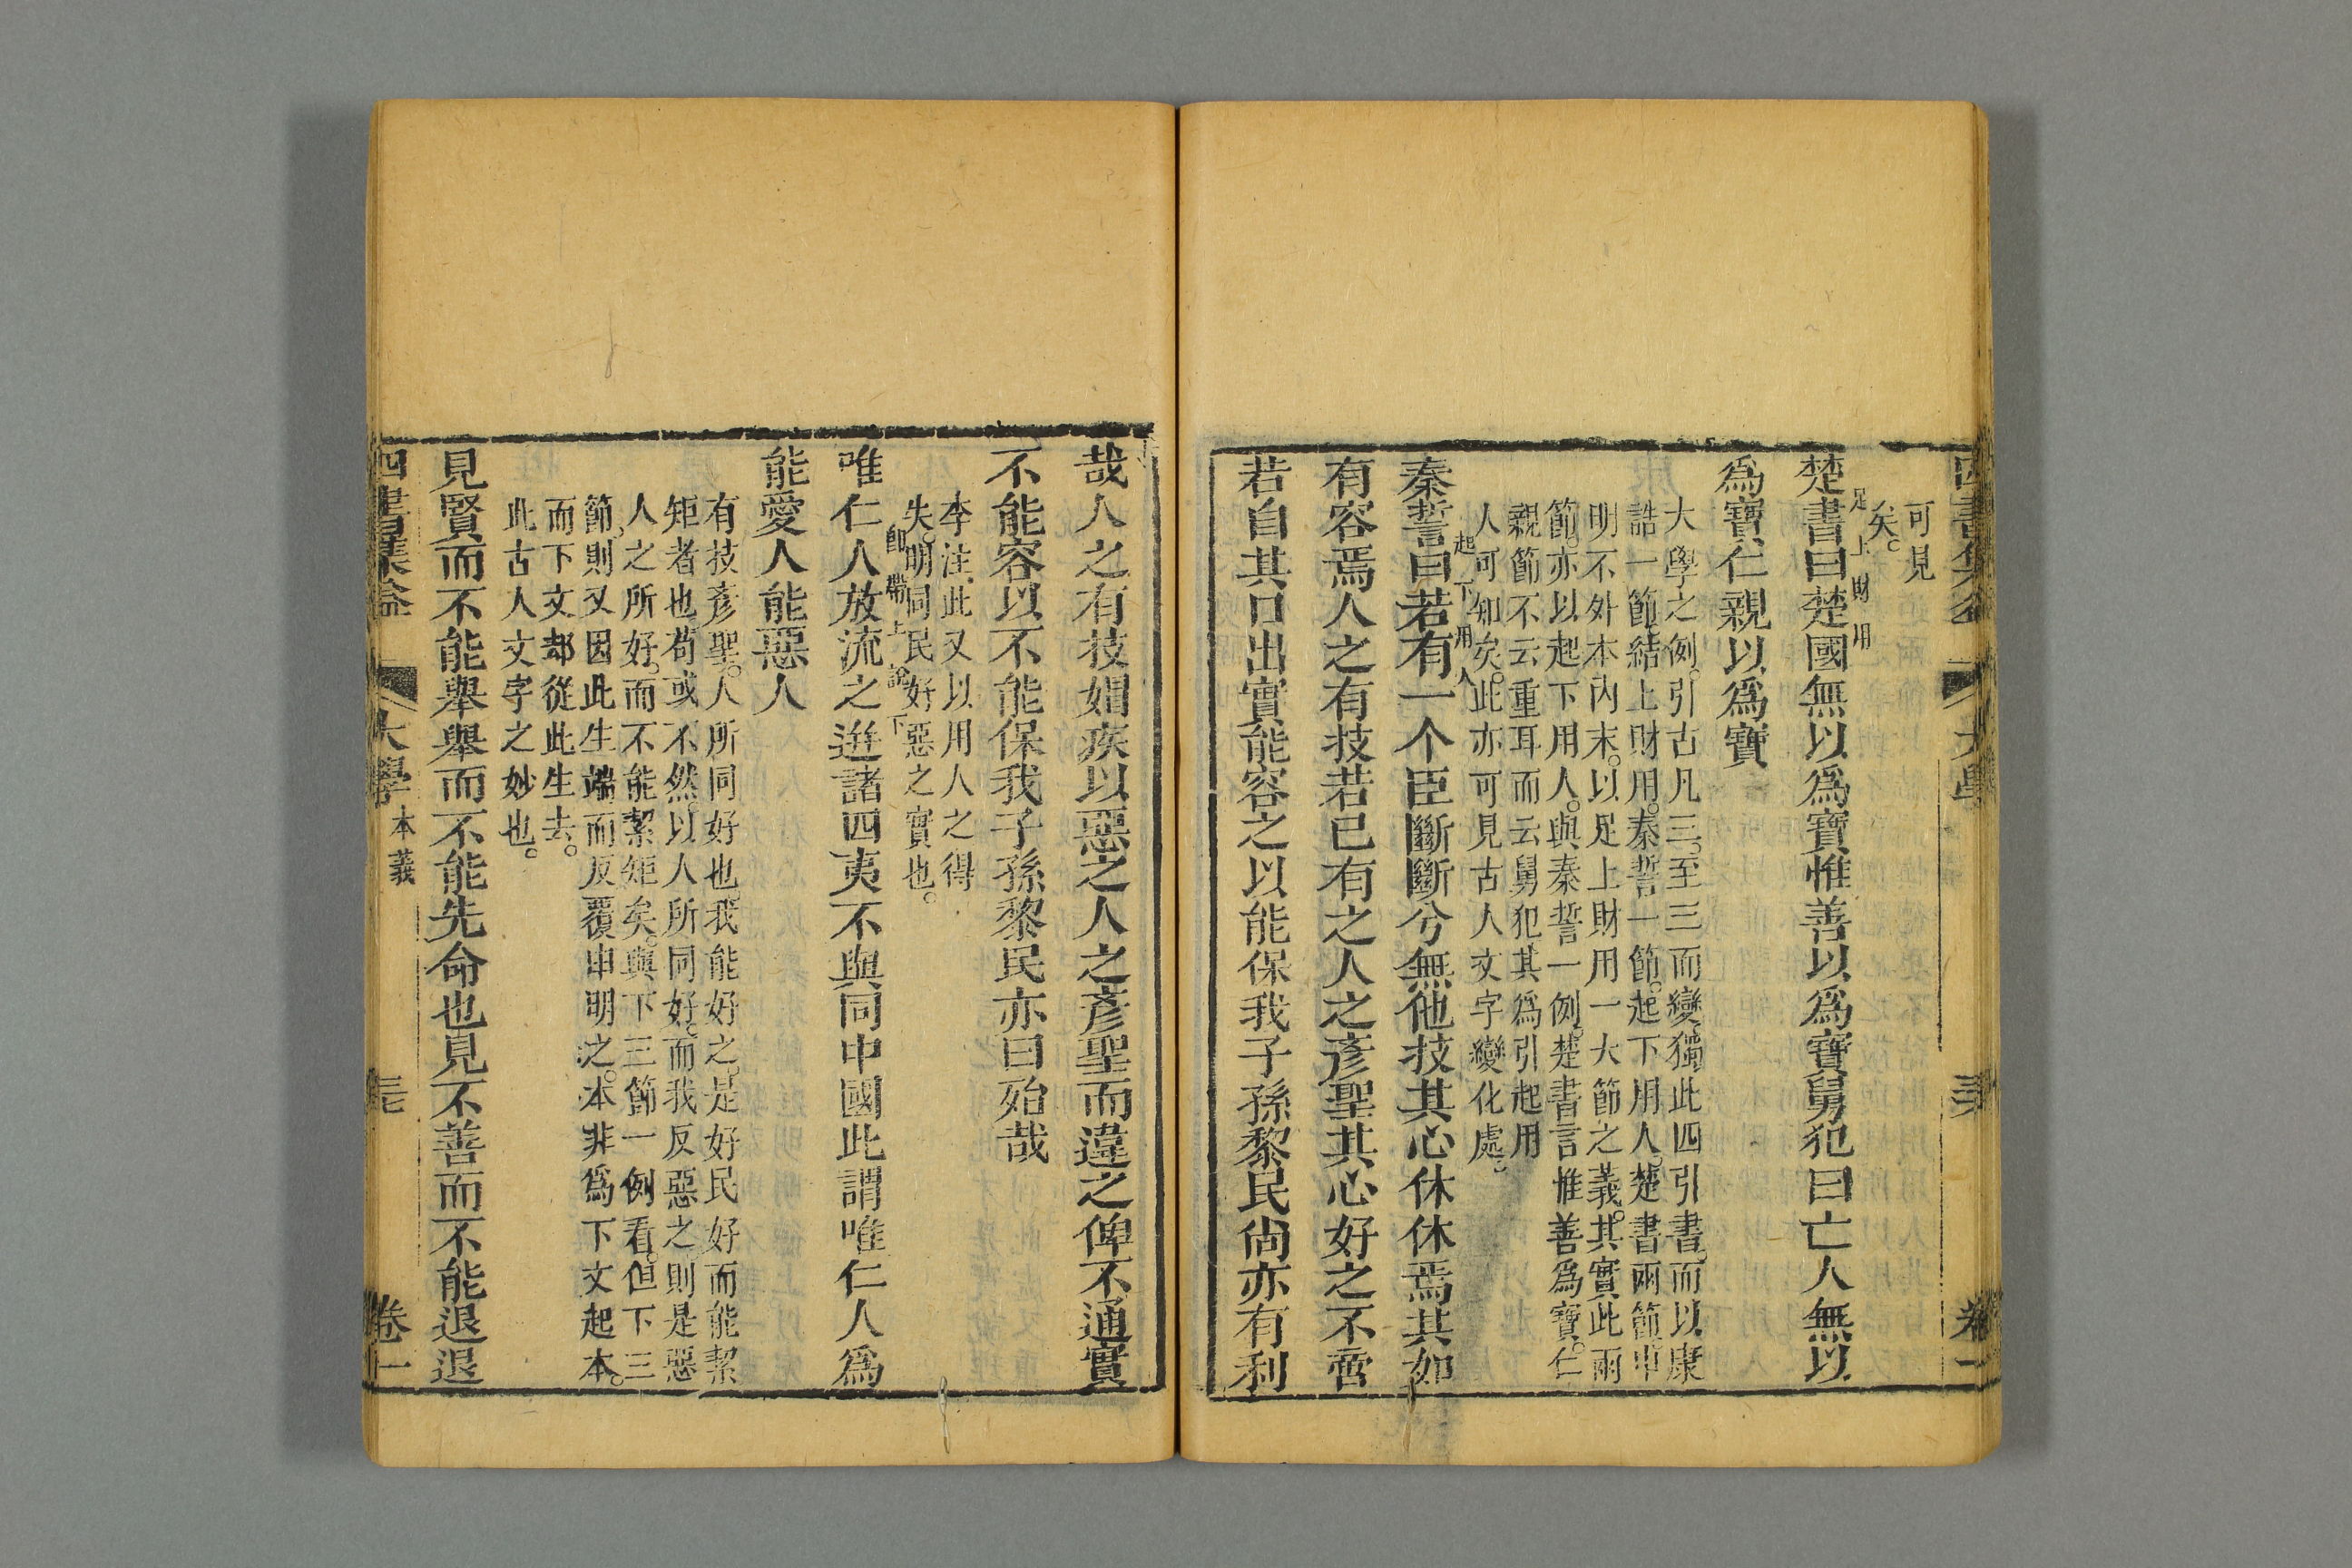 可見
矣。
足上財用
楚書曰楚國無以爲寶惟善以爲寶舅犯曰亡人無以
爲寶仁親以爲寶
大學之例。引古凡三。至三而變。獨此四引書。而以康
誥一節。結上財用。秦誓一節。起下用人。楚書兩節。申
明不外本內末。以足上財用一大節之義。其實此兩
節。亦以起下用人。與秦誓一例。楚書言惟善爲寶。仁
親節不云重耳而云舅犯。其爲引起用
人可知矣。此亦可見古人文字變化處。
起下用人
秦誓曰若有一个臣斷斷兮無他技其心休休焉其如
有容焉人之有技若已有之人之彥聖其心好之不啻
若自其口出寔能容之以能保我子孫黎民尙亦有利
哉人之有技媢疾以惡之人之彥聖而違之俾不通寔
不能容以不能保我子孫黎民亦曰殆哉
李注。此又以用人之得
失。明同民好惡之實也。
卽帶上說下
唯仁人放流之迸諸四夷不與同中國此謂唯仁人爲
能愛人能惡人
有技彥聖。人所同好也我能好之。是好民好而能絜
矩者也苟或不然。以人所同好。而我反惡之。則是惡
人之所好。而不能絜矩矣。與下三節一例看。但下三
節。則又因此生端而反覆申明之。本非爲下文起本。
而下文却從此生去。
此古人文字之妙也。
見賢而不能舉舉而不能先命也見不善而不能退退
大學
本義
卷一